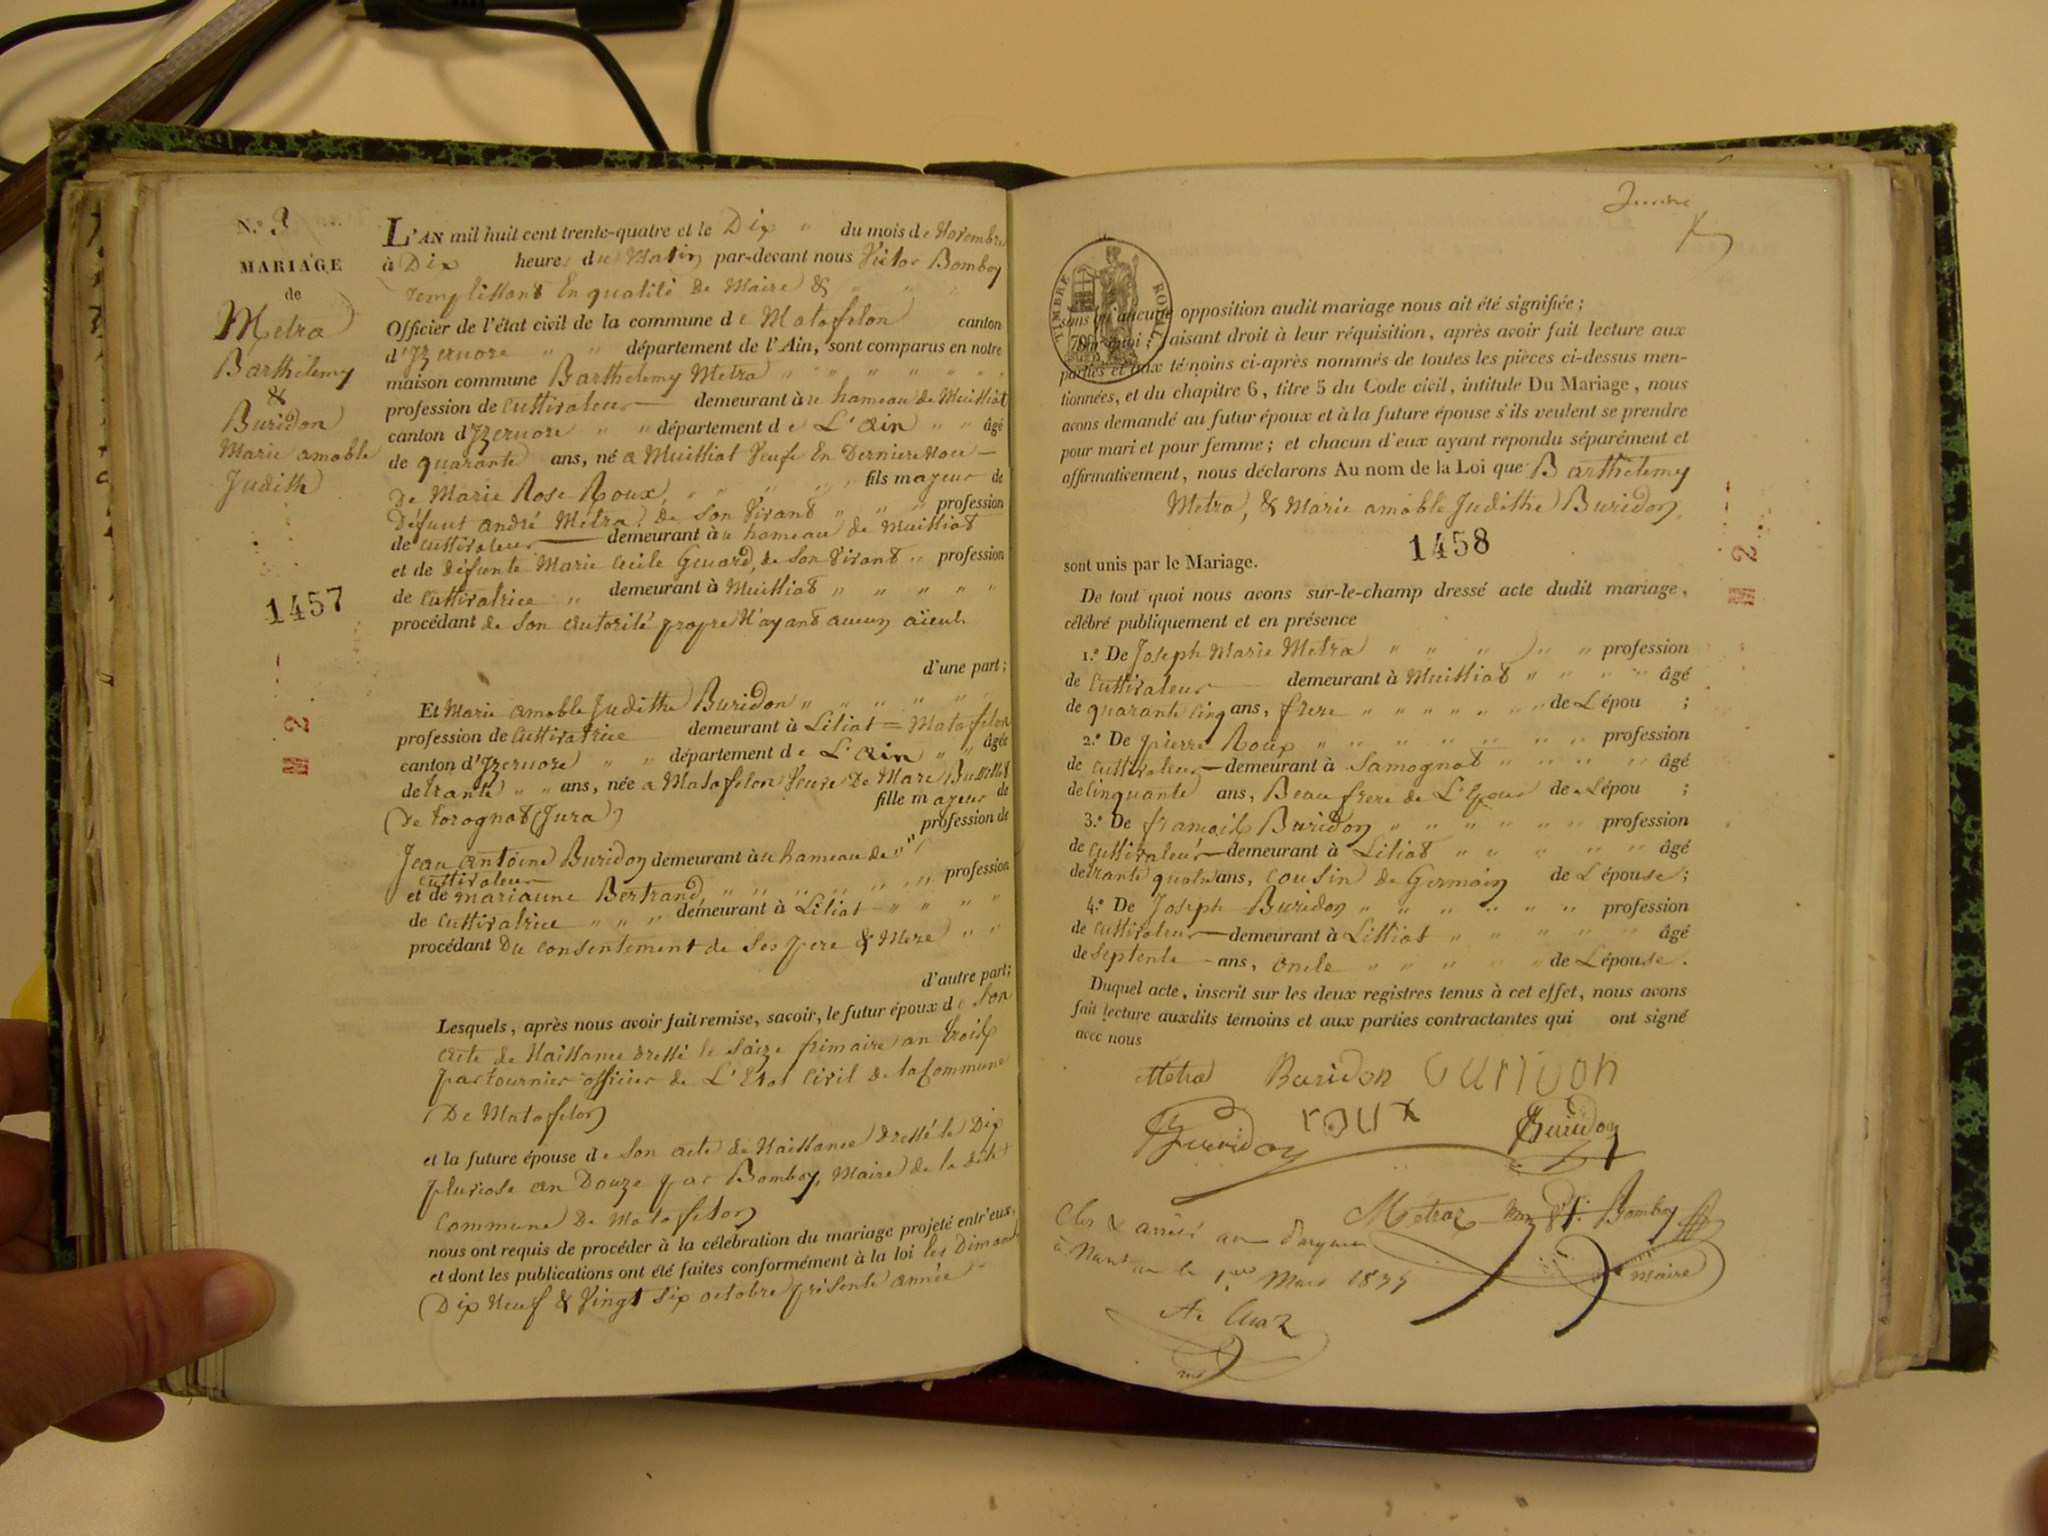 N.o 3
MARIAGE
de
Metra
Barthelemy
&
Buridon
Marie amable
Judith
1457
L'AN mil huit cent trente-quatre et le Dix " du mois de Novembre
à Dix heures du Matin par-devant nous Victor Bomboy
remplissant En qualité De Maire & " " "
Officier de l'état civil de la commune de Matafelon canton
d'Izernore " " département de l'Ain, sont comparus en notre
maison commune Barthelemy Metra " " " " " "
profession de Cultivateur demeurant àu hameau de Muissiat
canton d'Izernore " " département de L'Ain " " âgé
de quarante ans, né a Muissiat Veufe En Derniere Noce
De Marie Rose Roux, " " " " fils mayeur de
Défunt andré Metra, de Son Vivant " " " profession
de cultivateur demeurant àu hameau de Muissiat
et de défunte Marie Cecile Guard, de Son Vivant " profession
de Cultivatrice " demeurant à Muissiat " " " " "
procédant de Son autorité propre N'ayant aucun aïeul.
d'une part;
Et Marie amable Judithe Buridon " " " " "
profession de Cultivatrice demeurant à Liliat = Matafelon
canton d'Izernore " " département de L'Ain " " âgée
de trante " " ans, née a Matafelon Veuve De Marc
(De Corognat (Jura) fille mayeur de
Jean antoine Buridon demeurant àu hameau de " " profession de
cultivateur
et de mariaune Bertrand, " " " " " " profession
de Cultivatrice " " " demeurant à Liliat " " " "
procédant Du consentement de Ses pere & Mere " "
d'autre part;
Lesquels, après nous avoir fait remise, savoir, le futur époux de Son
acte de Naissance dressé le Saize frimaire an trois
par tournier officier de L'Etat Civil de la Commune
De Matafelon
et la future épouse de Son acte de Naissance dressé le Dix
pluviose an Douze par Bomboy, Maire de la dite
Commune De Matafelon
nous ont requis de procéder à la célébration du mariage projeté entr'eux,
et dont les publications ont été faites conformément à la loi les Dimanche
Dix Neuf & Vingt Six octobre présente année
TIMBRE ROYAL
sans qu'aucune opposition audit mariage nous ait été signifiée;
faisant droit à leur réquisition, après avoir fait lecture aux
parties et aux témoins ci-après nommés de toutes les pièces ci-dessus men-
tionnées, et du chapitre 6, titre 5 du Code civil, intitulé Du Mariage, nous
avons demandé au futur époux et à la future épouse s'ils veulent se prendre
pour mari et pour femme; et chacun d'eux ayant repondu séparément et
affirmativement, nous déclarons Au nom de la Loi que Barthelemy
Metra, & Marie amable Judithe Buridon,
1458
sont unis par le Mariage.
De tout quoi nous avons sur-le-champ dressé acte dudit mariage,
célébré publiquement et en présence
1.o De Joseph Marie Metra " " " " " profession
de Cultivateur demeurant à Muissiat " " " " âgé
de quarante cinq ans, frere " " " " " " " de Lépou ;
2.o De pierre Roux " " " " " " " profession
de cultivateur demeurant à Samognat " " " " âgé
de cinquante ans, Beau frere de L'Epou de Lépou ;
3.o De francois Buridon " " " " " " profession
de Cultivateur demeurant à Liliat " " " " " âgé
de trante quatre ans, Cousin de Germain de L'épouse;
4.o De Joseph Buridon " " " " " " profession
de cultivateur demeurant à Littiat " " " " " âgé
de septente ans, oncle " " " " " de Lépouse.
Duquel acte, inscrit sur les deux registres tenus à cet effet, nous avons
fait lecture auxdits témoins et aux parties contractantes qui ont signé
avec nous
Métra Buridon Buridon
Buridon roux Buridon
Métraz Bomboy
maire
Clos & arrêté
à Nantua le 1er Mars 1835